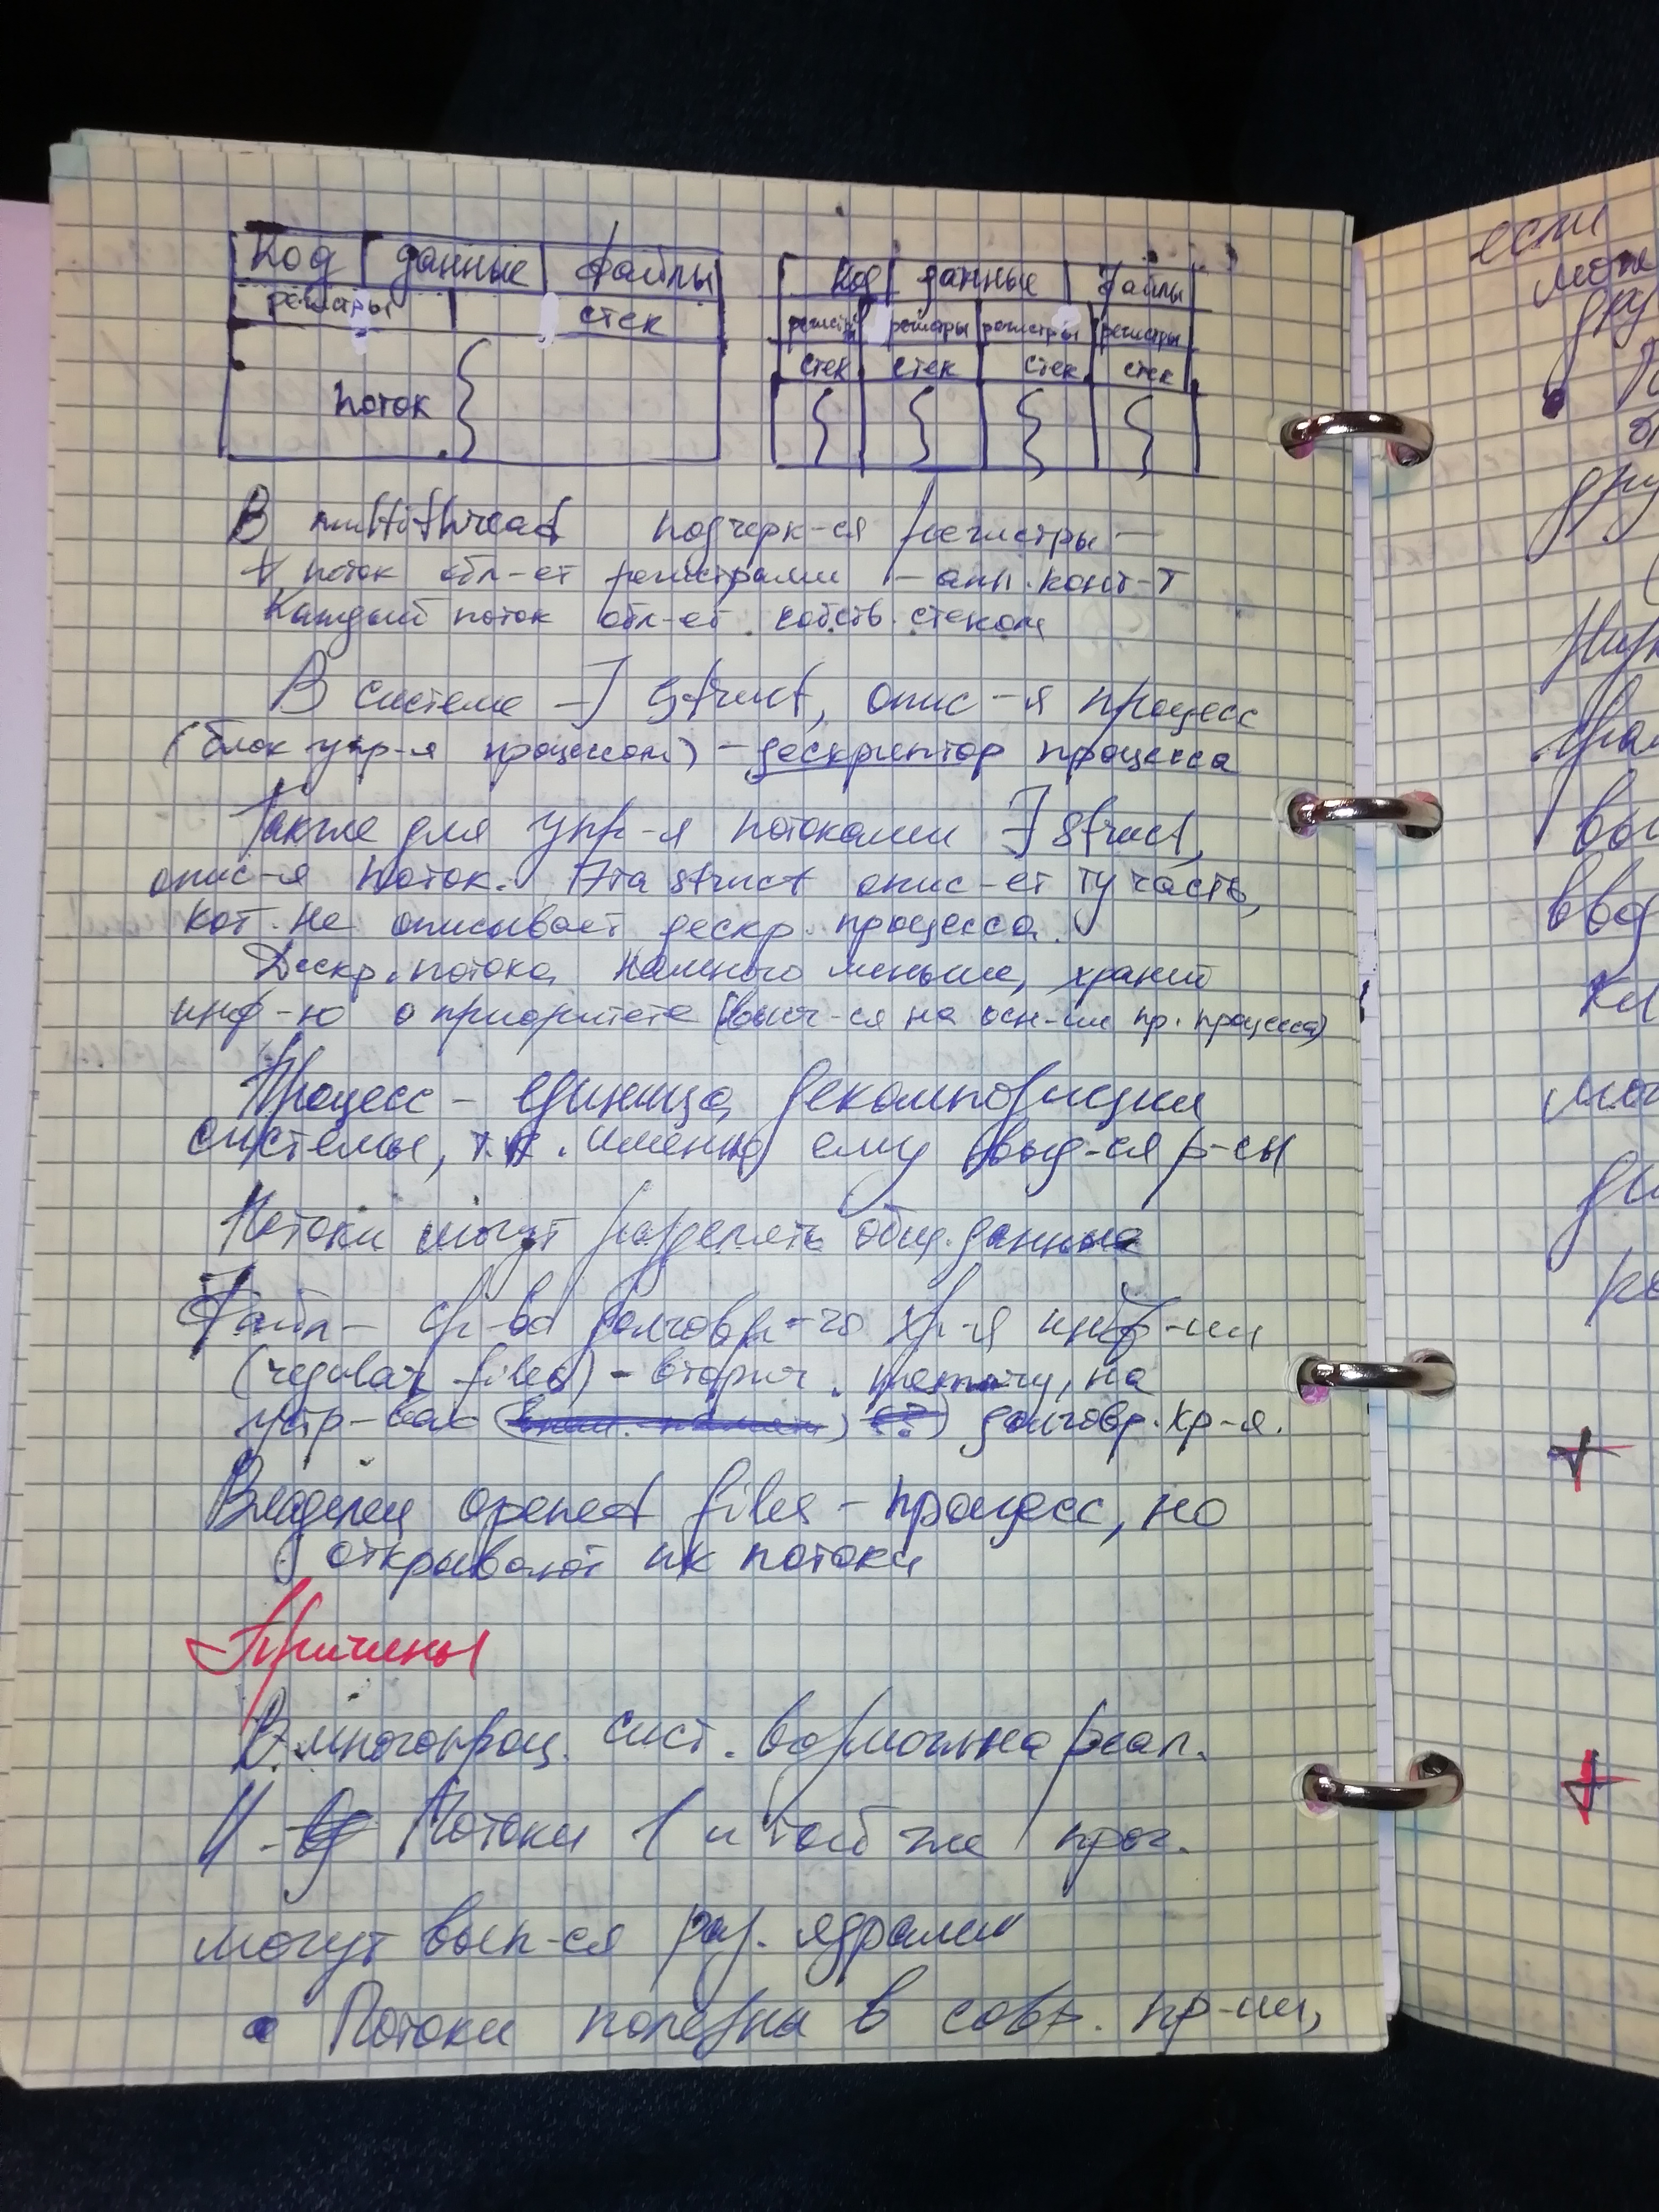 Код данные файлы
регистры стек
поток
Код данные файлы
регистры регистры регистры регистры
стек стек стек стек
В multithread подчерк-ся регистры —
∀ поток обл-ет регистрами — апп. конт-т
Каждый поток обл-ет собств. стеком
В системе ∃ struct, опис-я процесс
(блок упр-я процессом) — дескриптор процесса
Также для упр-я потоками ∃ struct,
опис-я поток. Эта struct опис-ет ту часть,
кот. не описывает дескр. процесса.
Дескр. потока намного меньше, хранит
инф-ю о приоритете (выч-ся на осн-ии пр. процесса)
Процесс — единица декомпозиции
системы, т.к. именно ему выд-ся р-сы
Потоки могут разделять общ. данные
Файл — ср-во долговр-го хр-я инф-ии
(regular files) — вторич. memory, на
устр-вах долговр. хр-я.
Владелец opened files — процесс, но
открывают их потоки
Причины
В многопроц. сист. возможна реал.
//. Потоки 1 и той же прог.
могут вып-ся раз. ядрами
• Потоки полезны в совр. пр-ии,
если